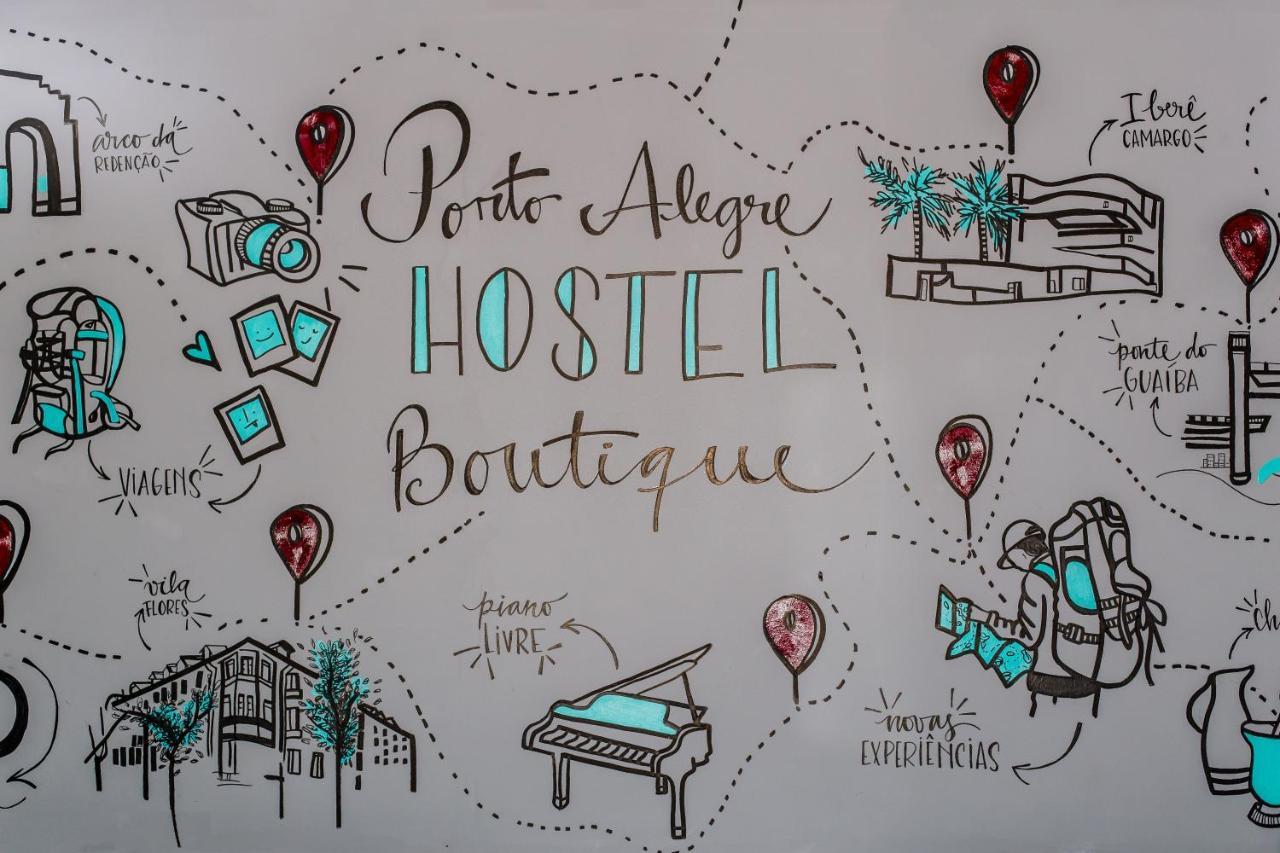 Porto Alegre
HOSTEL
Boutique
arco da
REDENÇÃO
Iberê
CAMARGO
ponte do
GUAÍBA
VIAGENS
vila
FLORES
piano
LIVRE
novas
EXPERIÊNCIAS